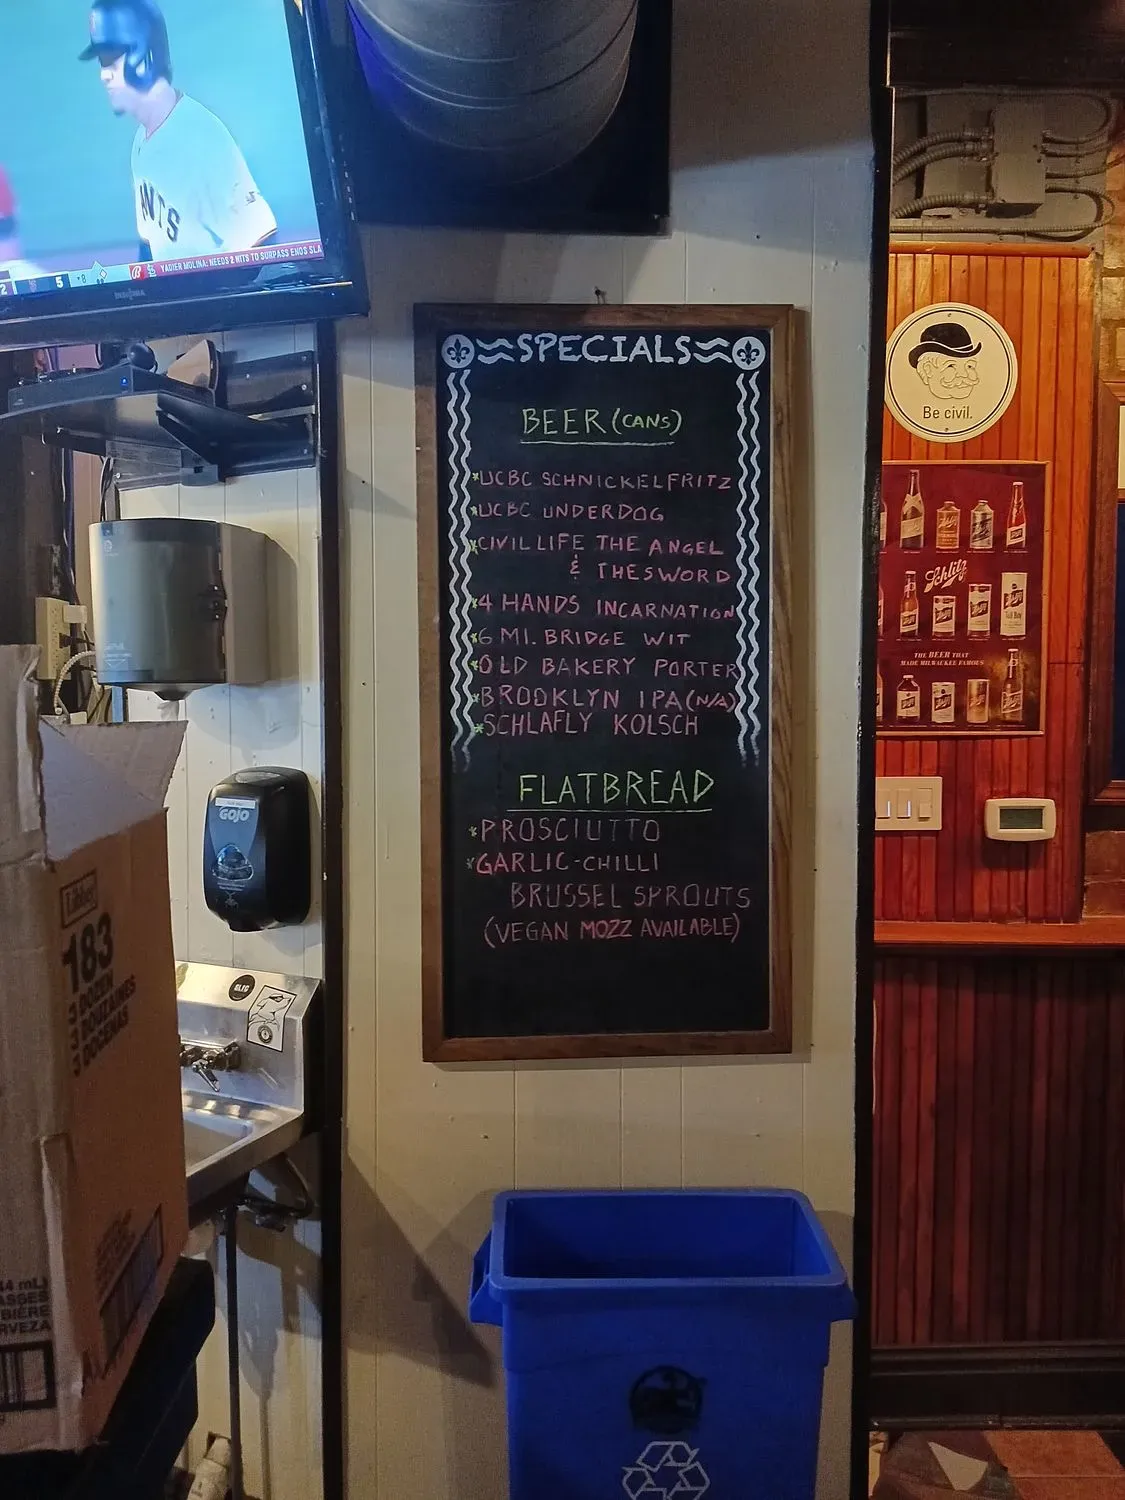 ANTS
2
5
8
YADIER MOLINA: NEEDS 2 HITS TO SURPASS ENOS SLA
INSIGNIA
SPECIALS
BEER (CANS)
*UCBC SCHNICKELFRITZ
*UCBC UNDERDOG
*CIVIL LIFE THE ANGEL
& THE SWORD
*4 HANDS INCARNATION
*6 MI. BRIDGE WIT
*OLD BAKERY PORTER
*BROOKLYN IPA (N/A)
*SCHLAFLY KOLSCH
FLATBREAD
*PROSCIUTTO
*GARLIC-CHILLI
BRUSSEL SPROUTS
(VEGAN MOZZ AVAILABLE)
Be civil.
Schlitz
THE BEER THAT
MADE MILWAUKEE FAMOUS
GOJO
Libbey
183
3 DOZEN
3 DOUZAINES
3 DOCENAS
44 mL)
ASSES
BIÈRE
RVEZA